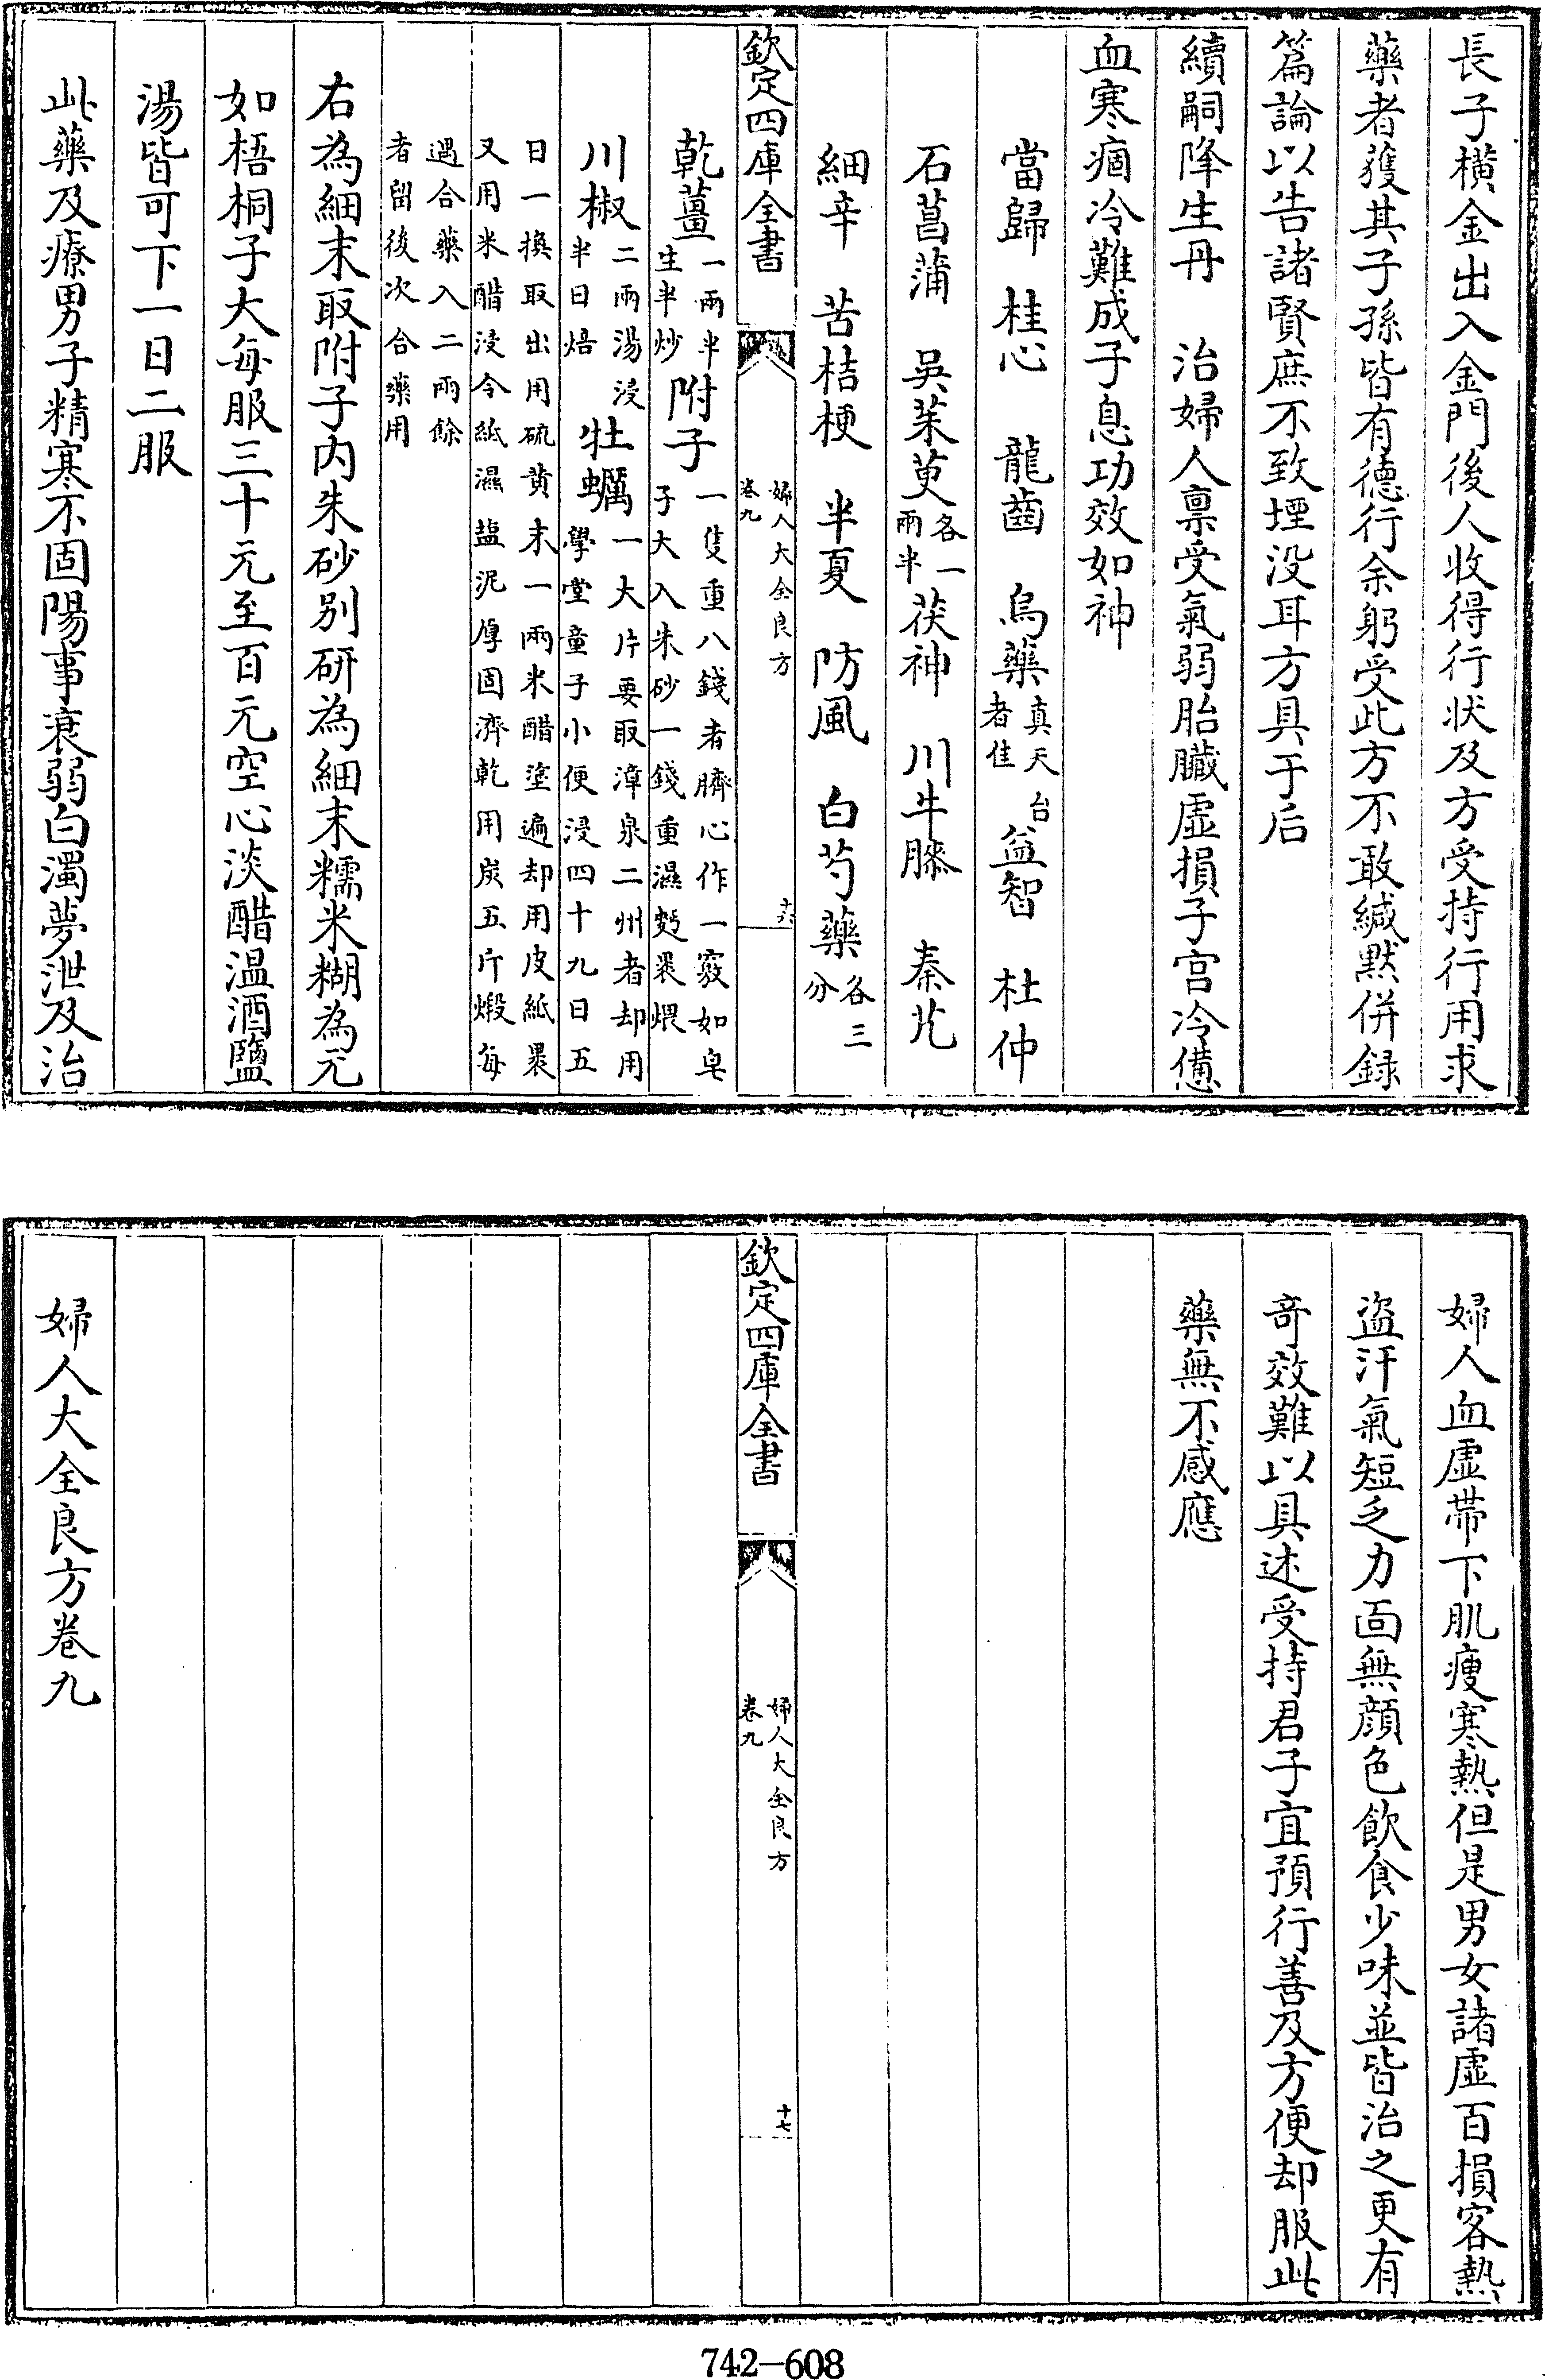 長子橫金出入金門後人收得行状及方受持行用求
藥者獲其子孫皆有德行余躬受此方不敢緘黙併録
篇論以告諸賢庶不致堙没耳方具于后
續嗣降生丹　治婦人禀受氣弱胎臟虛損子宮冷憊
血寒痼冷難成子息功效如神
當歸　桂心　龍齒　烏藥真天台者佳　益智　杜仲
石菖蒲　吳茱萸各一兩半　茯神　川牛膝　秦艽
細辛　苦桔梗　半夏　防風　白芍藥各三分
欽定四庫全書　婦人大全良方　卷九　十六
乾薑一兩半生半炒　附子一隻重八錢者臍心作一竅如皂子大入朱砂一錢重濕麪裹煨
川椒二兩湯浸半日焙　牡蠣一大片要取漳泉二州者却用學堂童子小便浸四十九日五
日一換取出用硫黄末一兩米醋塗遍却用皮紙裹又用米醋浸令紙濕盐泥厚固濟乾用炭五斤煅每
遇合藥入二兩餘者留後次合藥用
右為細末取附子内朱砂别研為細末糯米糊為元
如梧桐子大每服三十元至百元空心淡醋温酒鹽
湯皆可下一日二服
此藥及療男子精寒不固陽事衰弱白濁夢泄及治
婦人血虛帶下肌瘦寒熱但是男女諸虛百損客熱
盜汗氣短乏力面無顔色飲食少味並皆治之更有
奇效難以具述受持君子宜預行善及方便却服此
藥無不感應
欽定四庫全書　婦人大全良方　卷九　十七
婦人大全良方卷九
742-608